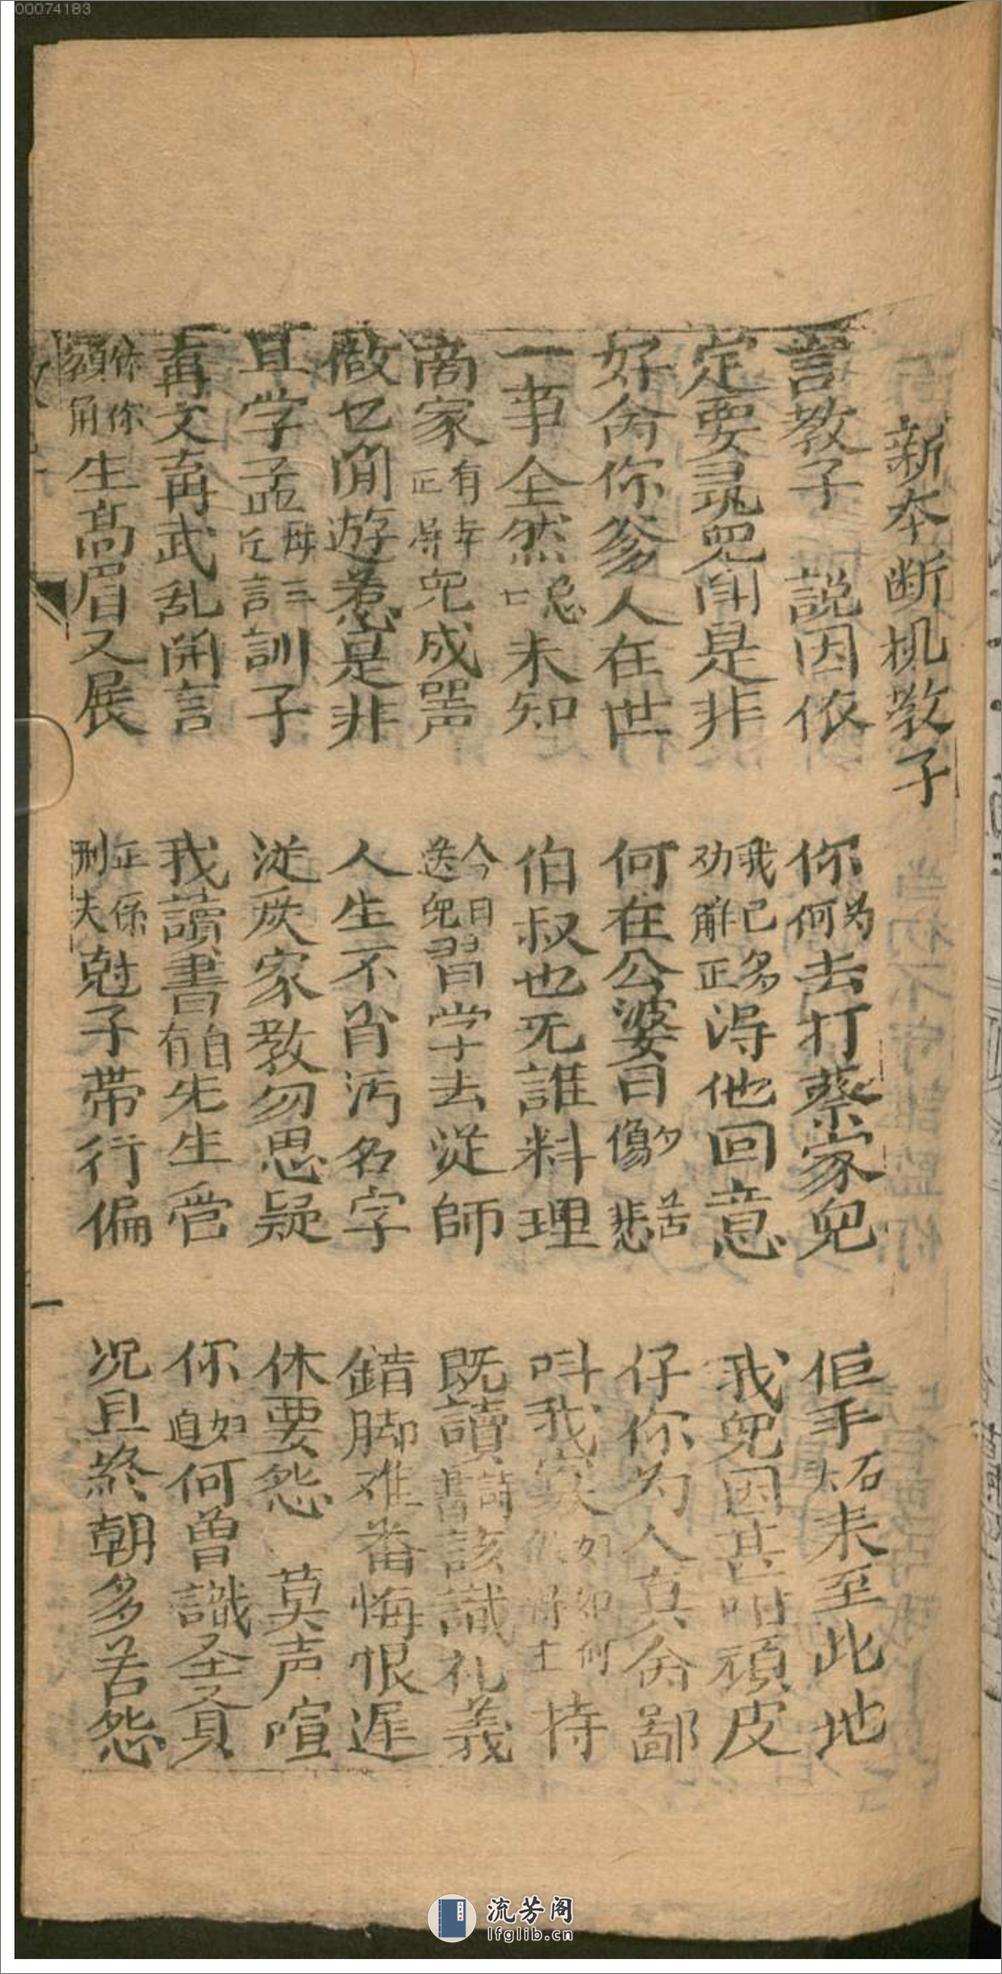 00074183
新本断机教子
言教子 説因依 你为何去打蔡家兒 佢手拓来至此地
定要尋兜闹是非 我已多劝解正得他回意 我兜因甚咁頑皮
好肏你爹人在世 何在公婆日夕傷悲苦 仔你为人真肏鄙
一事全然唿未知 伯叔也无誰料理 叫我寡如何 持
商家有幸正得兜成器 今日送兜習学去従師 既讀詩書該識礼義
做乜閒遊惹是非 人生不肖污名字 錯脚难番悔恨遲
且学孟母三迁訓子 従厥家教勿思疑 休要怨 莫声喧
再文再武乱開言 我讀書自有先生管 你如何曾識圣贤
你額角生高眉又展 正係刑夫尅子带行偏 况且終朝多苦怨
一
流芳阁
lfglib.cn